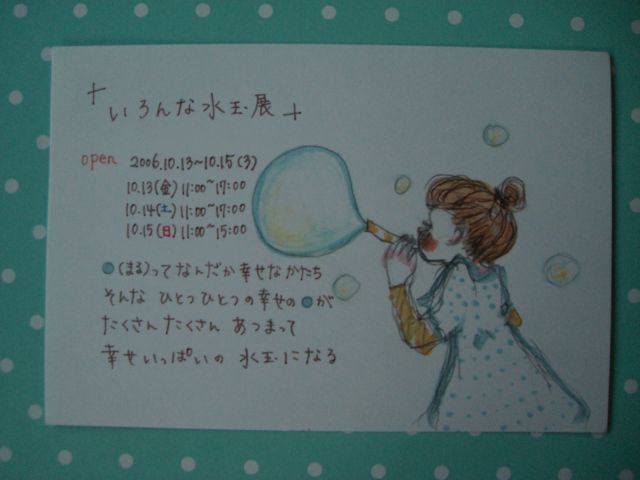 + いろんな水玉展 +
open 2006.10.13~10.15(3)
10.13(金) 11:00~17:00
10.14(土) 11:00~17:00
10.15(日) 11:00~15:00
●(まる)ってなんだか幸せなかたち
そんな ひとつひとつの幸せの●が
たくさんたくさん あつまって
幸せいっぱいの 水玉になる